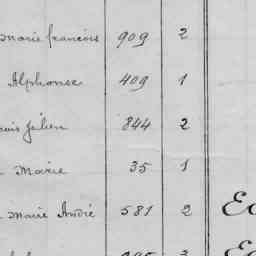 Marie françois 909 2
Alphonse 409 1
Julien 844 2
Marie 35 1
Marie André 581 2
3